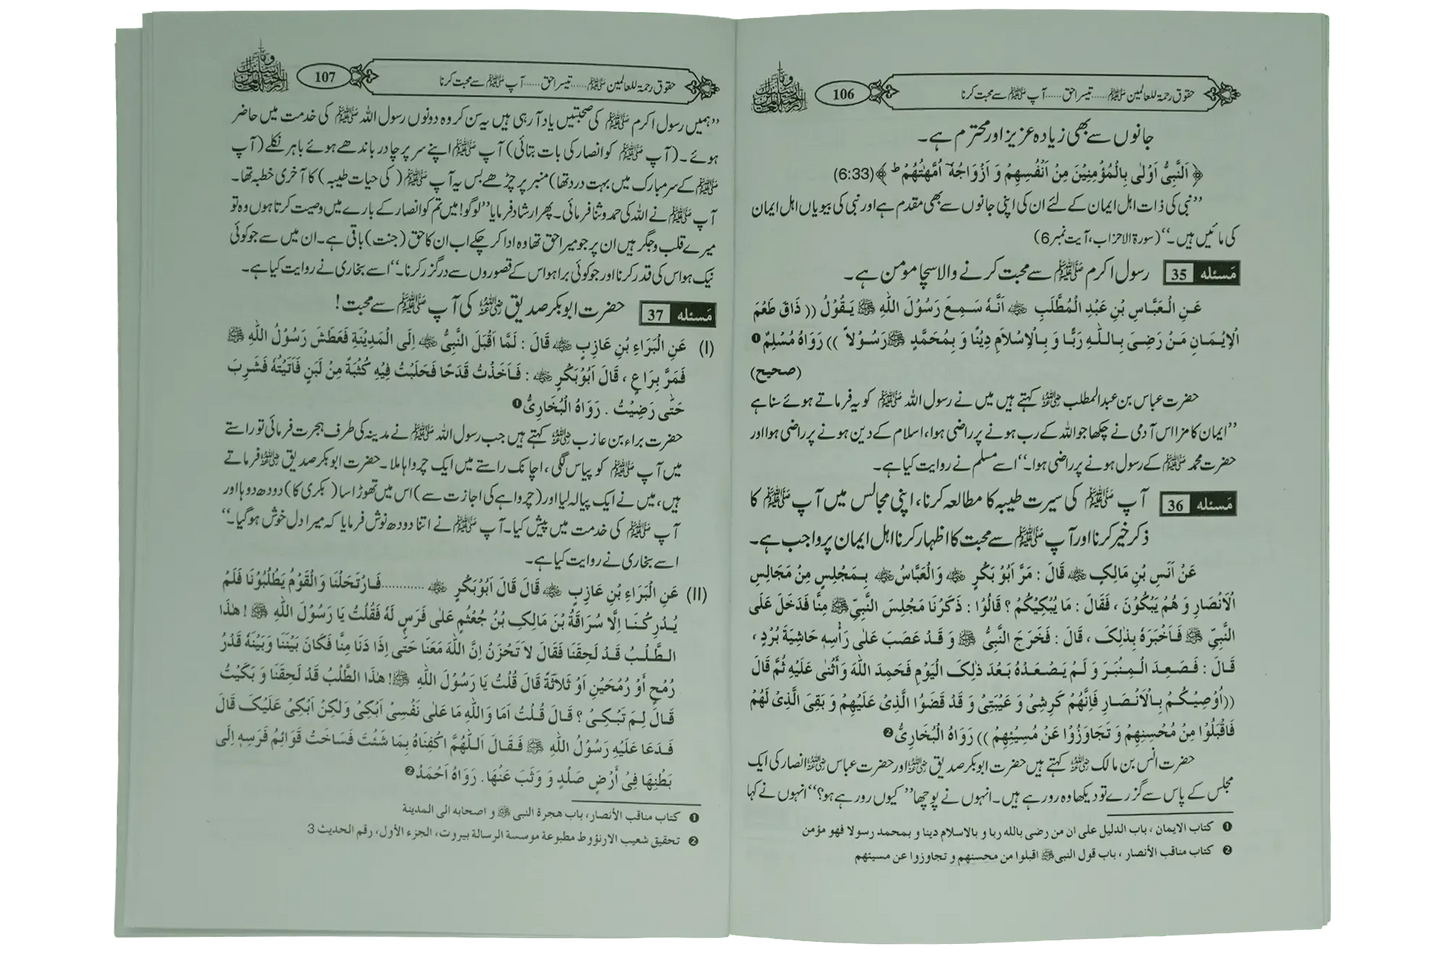 حقوق رحمۃ للعالمین ﷺ ...... تیسرا حق ...... آپ ﷺ سے محبت کرنا
106
جانوں سے بھی زیادہ عزیز اور محترم ہے۔
﴿ اَلنَّبِیُّ اَوْلٰی بِالْمُؤْمِنِیْنَ مِنْ اَنْفُسِهِمْ وَ اَزْوَاجُهٗٓ اُمَّهٰتُهُمْ ط ﴾(6:33)
’’نبی کی ذات اہل ایمان کے لئے ان کی اپنی جانوں سے بھی مقدم ہے اور نبی کی بیویاں اہل ایمان
کی مائیں ہیں۔‘‘ (سورۃ الاحزاب، آیت نمبر 6)
مَسئله 35 رسول اکرم ﷺ سے محبت کرنے والا سچا مؤمن ہے۔
عَنِ الْعَبَّاسِ بْنِ عَبْدِ الْمُطَّلِبِ ؓ اَنَّهٗ سَمِعَ رَسُوْلَ اللّٰهِ ﷺ یَقُوْلُ (( ذَاقَ طَعْمَ
الْاِیْمَانِ مَنْ رَضِیَ بِاللّٰهِ رَبًّا وَ بِالْاِسْلَامِ دِیْنًا وَ بِمُحَمَّدٍ ﷺ رَسُوْلًا )) رَوَاهُ مُسْلِمٌ ❶
(صحیح)
حضرت عباس بن عبدالمطلب ؓ کہتے ہیں میں نے رسول اللہ ﷺ کو یہ فرماتے ہوئے سنا ہے
’’ایمان کا مزا اس آدمی نے چکھا جو اللہ کے رب ہونے پر راضی ہوا، اسلام کے دین ہونے پر راضی ہوا اور
حضرت محمد ﷺ کے رسول ہونے پر راضی ہوا۔‘‘ اسے مسلم نے روایت کیا ہے۔
مَسئله 36 آپ ﷺ کی سیرت طیبہ کا مطالعہ کرنا، اپنی مجالس میں آپ ﷺ کا
ذکر خیر کرنا اور آپ ﷺ سے محبت کا اظہار کرنا اہل ایمان پر واجب ہے۔
عَنْ اَنَسِ بْنِ مَالِکٍ ؓ قَالَ : مَرَّ اَبُوْ بَکْرٍ ؓ وَالْعَبَّاسُ ؓ بِمَجْلِسٍ مِنْ مَجَالِسِ
الْاَنْصَارِ وَ هُمْ یَبْکُوْنَ ، فَقَالَ : مَا یُبْکِیْکُمْ ؟ قَالُوْا : ذَکَرْنَا مَجْلِسَ النَّبِیِّ ﷺ مِنَّا فَدَخَلَ عَلَی
النَّبِیِّ ﷺ فَاَخْبَرَهٗ بِذٰلِکَ ، قَالَ : فَخَرَجَ النَّبِیُّ ﷺ وَ قَدْ عَصَبَ عَلٰی رَأْسِهٖ حَاشِیَةَ بُرْدٍ ،
قَالَ : فَصَعِدَ الْمِنْبَرَ وَ لَمْ یَصْعَدْهُ بَعْدَ ذٰلِکَ الْیَوْمِ فَحَمِدَ اللّٰهَ وَ أَثْنٰی عَلَیْهِ ثُمَّ قَالَ
((اُوْصِیْکُمْ بِالْاَنْصَارِ فَاِنَّهُمْ کَرِشِیْ وَ عَیْبَتِیْ وَ قَدْ قَضَوُا الَّذِیْ عَلَیْهِمْ وَ بَقِیَ الَّذِیْ لَهُمْ
فَاقْبَلُوْا مِنْ مُحْسِنِهِمْ وَ تَجَاوَزُوْا عَنْ مُسِیْئِهِمْ )) رَوَاهُ الْبُخَارِیُّ ❷
حضرت انس بن مالک ؓ کہتے ہیں حضرت ابوبکر صدیق ؓ اور حضرت عباس ؓ انصار کی ایک
مجلس کے پاس سے گزرے تو دیکھا وہ رو رہے ہیں۔ انہوں نے پوچھا ’’کیوں رو رہے ہو؟‘‘ انہوں نے کہا
❶ کتاب الایمان ، باب الدلیل علی ان من رضی بالله ربا و بالاسلام دینا و بمحمد رسولا فهو مؤمن
❷ کتاب مناقب الأنصار ، باب قول النبی ﷺ اقبلوا من محسنهم و تجاوزوا عن مسیئهم
حقوق رحمۃ للعالمین ﷺ ...... تیسرا حق ...... آپ ﷺ سے محبت کرنا
107
’’ہمیں رسول اکرم ﷺ کی صحبتیں یاد آ رہی ہیں یہ سن کر وہ دونوں رسول اللہ ﷺ کی خدمت میں حاضر
ہوئے۔ (آپ ﷺ کو انصار کی بات بتائی) آپ ﷺ اپنے سر پر چادر باندھے ہوئے باہر نکلے (آپ
ﷺ کے سر مبارک میں بہت درد تھا) منبر پر چڑھے بس یہ آپ ﷺ (کی حیات طیبہ) کا آخری خطبہ تھا۔
آپ ﷺ نے اللہ کی حمد و ثنا فرمائی۔ پھر ارشاد فرمایا ’’لوگو! میں تم کو انصار کے بارے میں وصیت کرتا ہوں وہ تو
میرے قلب و جگر ہیں ان پر جو میرا حق تھا وہ ادا کر چکے اب ان کا حق (جنت) باقی ہے۔ ان میں سے جو کوئی
نیک ہو اس کی قدر کرنا اور جو کوئی برا ہو اس کے قصوروں سے درگزر کرنا۔‘‘ اسے بخاری نے روایت کیا ہے۔
مَسئله 37 حضرت ابوبکر صدیق ؓ کی آپ ﷺ سے محبت!
(I) عَنِ الْبَرَاءِ بْنِ عَازِبٍ ؓ قَالَ : لَمَّا اَقْبَلَ النَّبِیُّ ﷺ اِلَی الْمَدِیْنَةِ فَعَطَشَ رَسُوْلُ اللّٰهِ ﷺ
فَمَرَّ بِرَاعٍ ، قَالَ اَبُوْبَکْرٍ ؓ : فَاَخَذْتُ قَدَحًا فَحَلَبْتُ فِیْهِ کُثْبَةً مِنْ لَبَنٍ فَاَتَیْتُهٗ فَشَرِبَ
حَتّٰی رَضِیْتُ . رَوَاهُ الْبُخَارِیُّ ❶
حضرت براء بن عازب ؓ کہتے ہیں جب رسول اللہ ﷺ نے مدینہ کی طرف ہجرت فرمائی تو راستے
میں آپ ﷺ کو پیاس لگی، اچانک راستے میں ایک چرواہا ملا۔ حضرت ابوبکر صدیق ؓ فرماتے
ہیں، میں نے ایک پیالہ لیا اور (چرواہے کی اجازت سے) اس میں تھوڑا سا (بکری کا) دودھ دوہا اور
آپ ﷺ کی خدمت میں پیش کیا۔ آپ ﷺ نے اتنا دودھ نوش فرمایا کہ میرا دل خوش ہو گیا۔‘‘
اسے بخاری نے روایت کیا ہے۔
(II) عَنِ الْبَرَاءِ بْنِ عَازِبٍ ؓ قَالَ قَالَ اَبُوْبَکْرٍ ؓ ............ فَارْتَحَلْنَا وَالْقَوْمُ یَطْلُبُوْنَا فَلَمْ
یُدْرِکْنَا اِلَّا سُرَاقَةُ بْنُ مَالِکِ بْنِ جُعْثُمٍ عَلٰی فَرَسٍ لَهٗ فَقُلْتُ یَا رَسُوْلَ اللّٰهِ ﷺ ! هٰذَا
الطَّلَبُ قَدْ لَحِقَنَا فَقَالَ لَا تَحْزَنْ اِنَّ اللّٰهَ مَعَنَا حَتّٰی اِذَا دَنَا مِنَّا فَکَانَ بَیْنَنَا وَبَیْنَهٗ قَدْرُ
رُمْحٍ أَوْ رُمْحَیْنِ اَوْ ثَلَاثَةٍ قَالَ قُلْتُ یَا رَسُوْلَ اللّٰهِ ﷺ! هٰذَا الطَّلَبُ قَدْ لَحِقَنَا وَ بَکَیْتُ
قَالَ لِمَ تَبْکِیْ ؟ قَالَ قُلْتُ اَمَا وَاللّٰهِ مَا عَلٰی نَفْسِیْ اَبْکِیْ وَلٰکِنْ اَبْکِیْ عَلَیْکَ قَالَ
فَدَعَا عَلَیْهِ رَسُوْلُ اللّٰهِ ﷺ فَقَالَ اَللّٰهُمَّ اکْفِنَاهُ بِمَا شِئْتَ فَسَاخَتْ قَوَائِمُ فَرَسِهٖ اِلٰی
بَطْنِهَا فِیْ أَرْضٍ صَلْدٍ وَ وَثَبَ عَنْهَا . رَوَاهُ اَحْمَدُ ❷
❶ کتاب مناقب الأنصار، باب هجرة النبی ﷺ و اصحابه الی المدینة
❷ تحقیق شعیب الارنؤوط مطبوعة موسسة الرسالة بیروت، الجزء الأول، رقم الحدیث 3